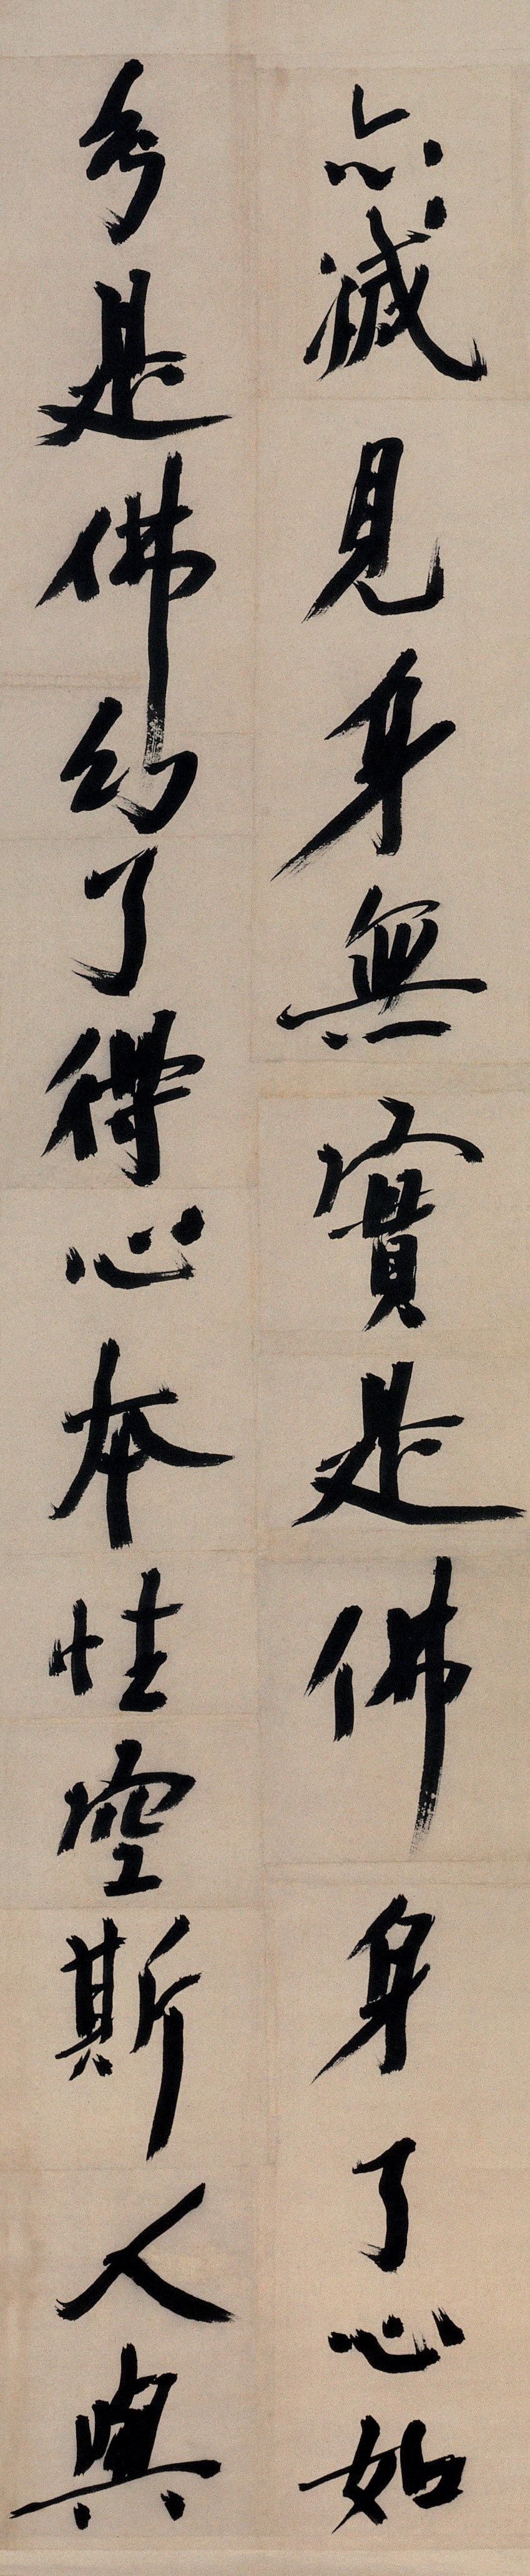 亦滅見身無實是佛身了心如
幻是佛幻了得心本性空斯人與